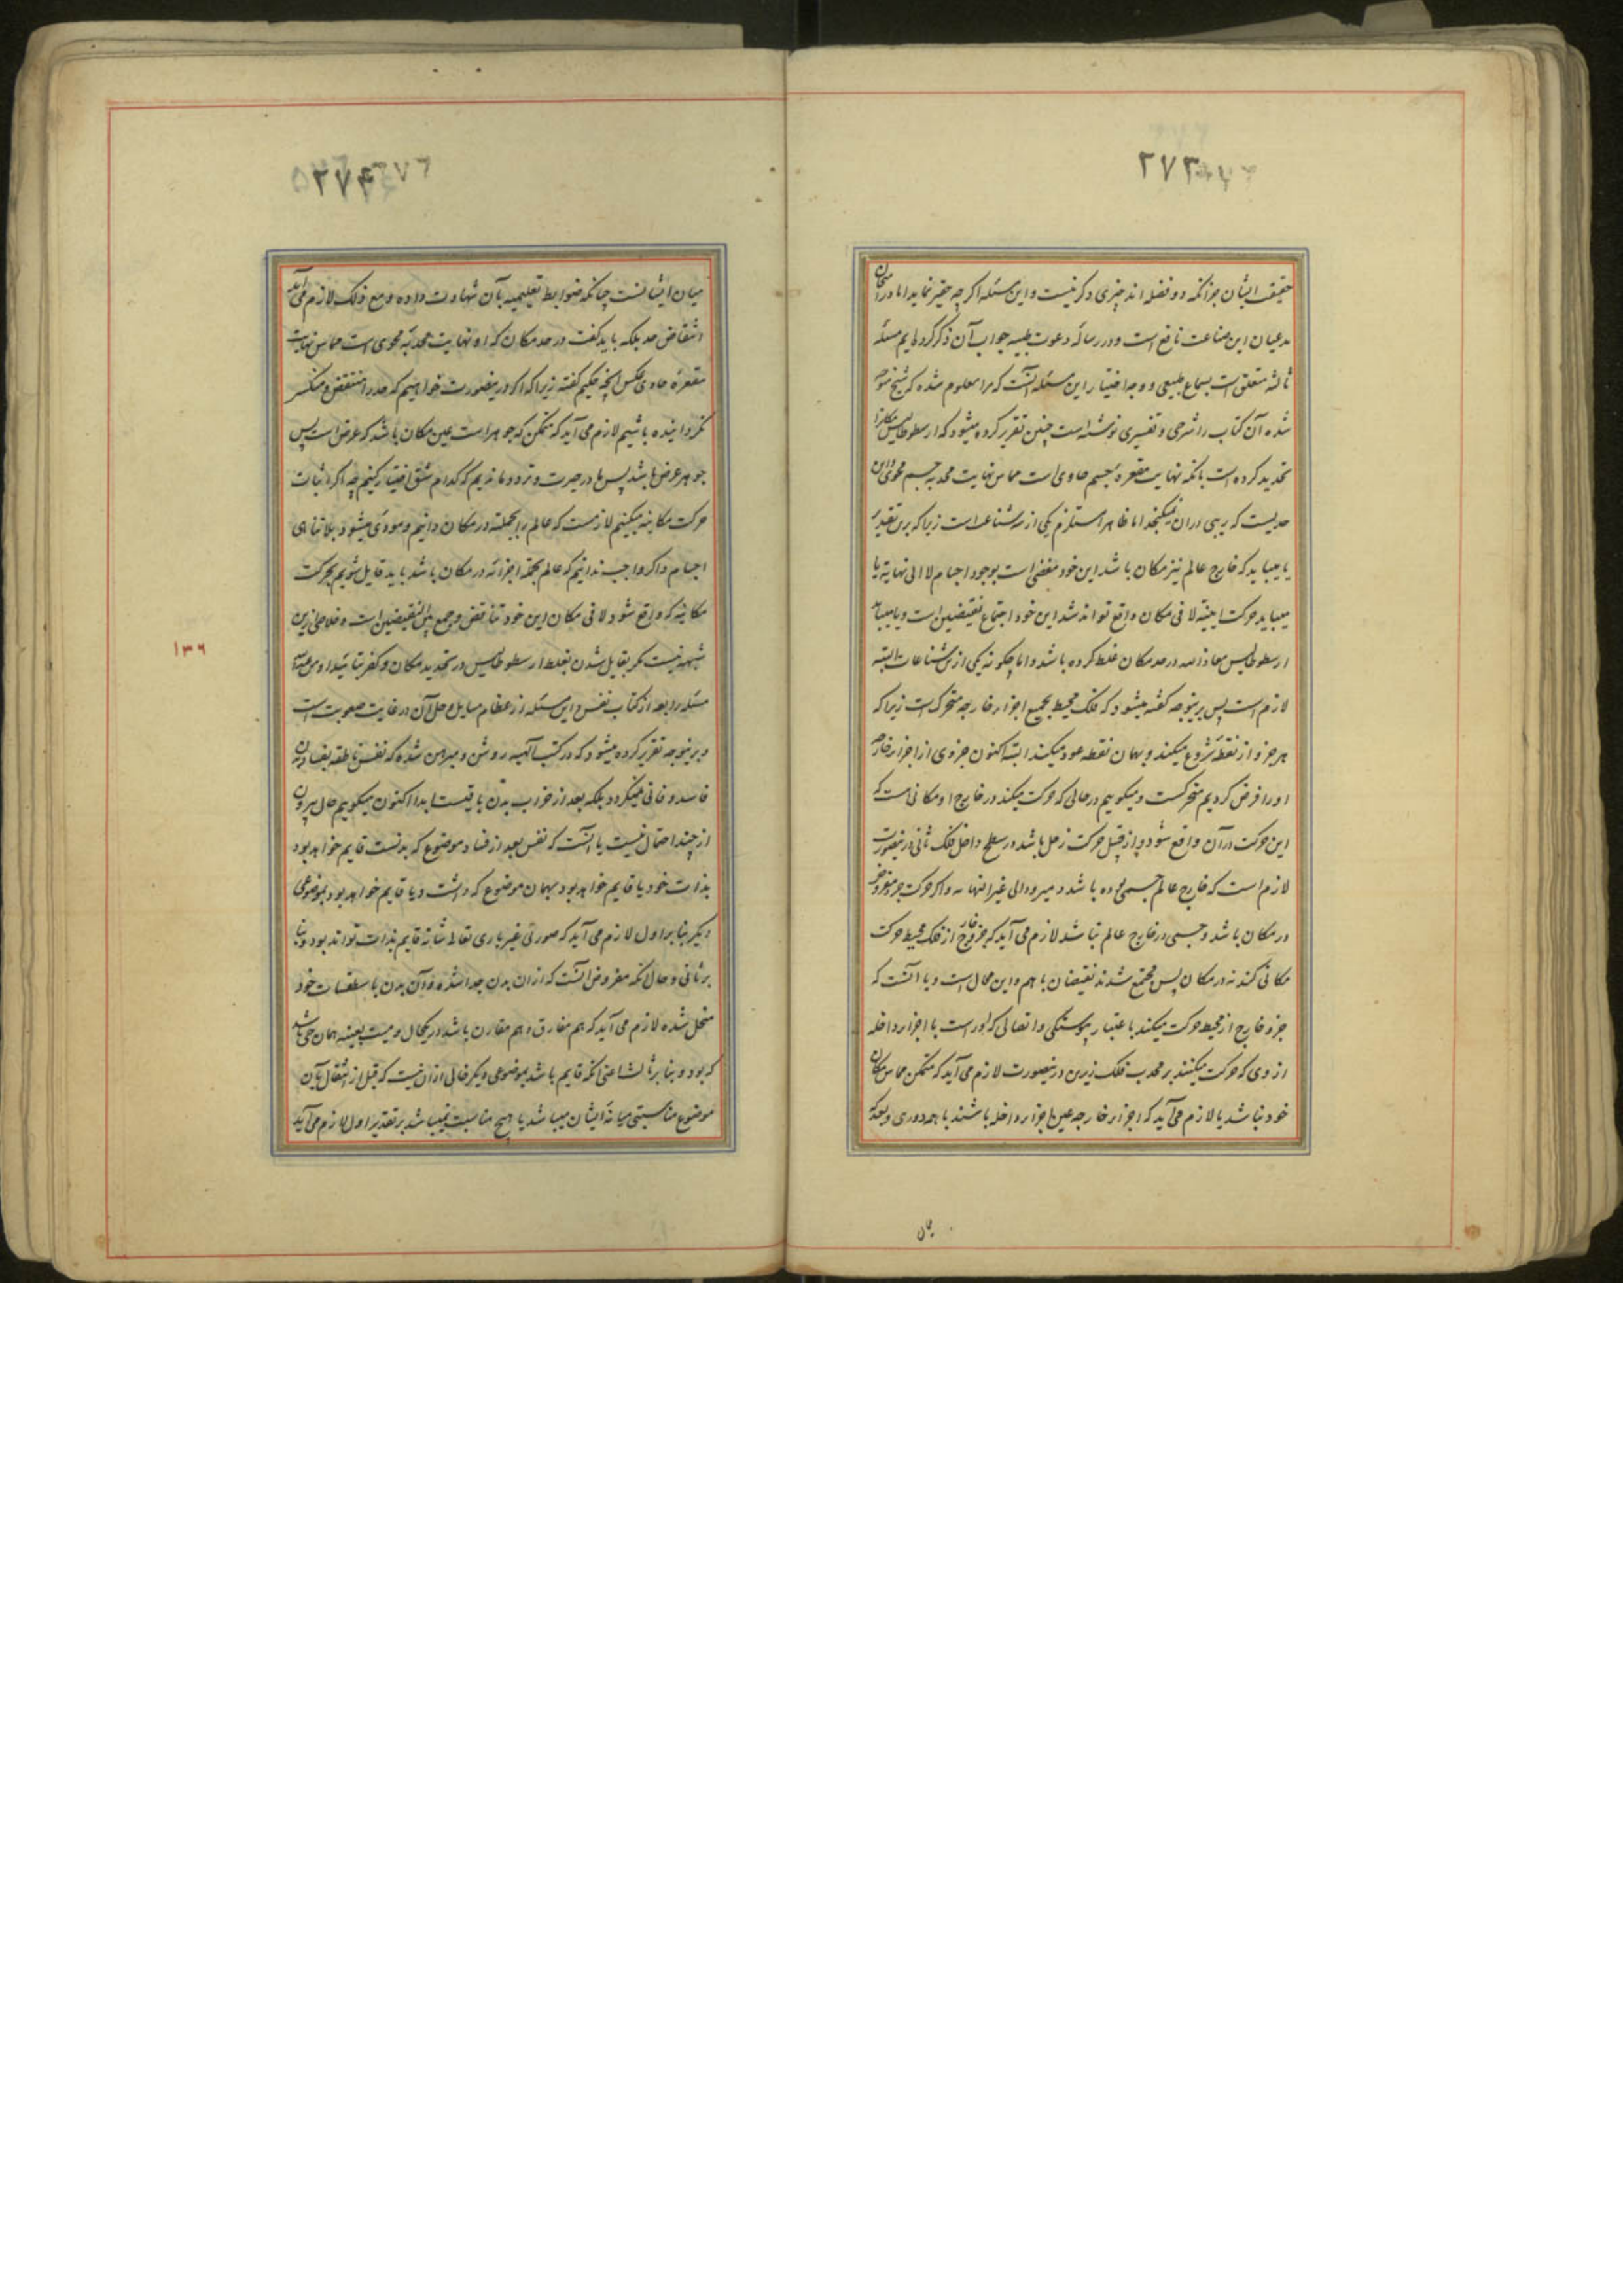 ۲۷۳
حقیقت ایشان جز آنکه دو فضله اند چیزی دکر نیست و این مسئله اکر چه حقیر نماید اما در امتحان
مدعیان این صناعت نافع است و در رساله دعوت طبیه جواب آن ذکر کرده ایم مسئله
ثالثه متعلق است بسماع طبیعی و وجه اختیار این مسئله آنست که مرا معلوم شده که شیخ متوجه
شده آن کتاب را شرحی و تفسیری نوشته است چنین تقریر کرده میشود که ارسطوطالیس مکانرا
تحدید کرده است بآنکه نهایت مقعره جسم حاوی است مماس نهایت محدبه جسم محوی و این
حدیست که ریبی در ان نمیکنجد اما ظاهرا مستلزم یکی از سه شناعت است زیرا که برین تقدیر
یا میباید که خارج عالم نیز مکان باشد این خود مفضی است بوجود اجسام لا الی نهایه یا
میباید حرکت اینیه لا فی مکان واقع تواند شد این خود اجتماع نقیضین است و یا میباید
ارسطوطالیس معاذ الله در حد مکان غلط کرده باشد و اما چکونه یکی ازین شناعات البته
لازم است پس برینوجه کفته میشود که فلک محیط بجمیع اجزاء خارجه متحرک است زیرا که
هر جزو از نقطه شروع میکند و بهمان نقطه عود میکند البته اکنون جزوی از اجزاء خارجه
او را فرض کردیم متحرکست و میکوییم در حالی که حرکت میکند در خارج او مکانی هست که
این حرکت در آن واقع شود و از قبیل حرکت زحل باشد در سطح داخل فلک ثانی درینصورت
لازم است که خارج عالم جسمی بوده باشد و میرود الی غیر النهایه و اکر حرکت جزو مفروض
در مکان باشد و جسمی در خارج عالم نباشد لازم می آید که جزو خارج از فلک محیط حرکت
مکانی کند نه در مکان پس مجتمع شدند نقیضان با هم و این محال است و یا آنست که
جزو خارج از محیط حرکت میکند باعتبار پیوستکی و اتصالی که او راست با اجزاء داخله
از وی که حرکت میکنند بر محدب فلک زیرین درینصورت لازم می آید که متمکن مماس مکان
خود نباشد یا لازم می آید که اجزاء خارجه عین اجزاء داخله باشند با همه دوری و بعد که
میان
۲۷۴
میان ایشانست چنانکه ضوابط تعلیمیه بآن شهادت داده و مع ذلک لازم می آید
انتقاض حد بلکه باید کفت در حد مکان که او نهایت محدبه محوی است مماس نهایت
مقعره حاوی عکس آنچه حکیم کفته زیرا که اکر درینصورت خواهیم که حد را منتقض و منکسر
نکردانیده باشیم لازم می آید که متمکن که جوهر است عین مکان باشد که عرض است پس
جوهر عرض باشد پس ما در حیرت و تردد ماندیم که کدام شق اختیار کنیم چه اکر اثبات
حرکت مکانیه میکنیم لازمست که عالم را بجملته در مکان دانیم و مودی میشود بلا تناهی
اجسام و اکر واجب ندانیم که عالم بجمله اجزائه در مکان باشد باید قایل شویم بحرکت
مکانیه که واقع شود لا فی مکان این خود تناقض و جمع بین النقیضین است و خلاصی ازین
شبهه نیست مکر بقایل شدن بغلط ارسطوطالیس در تحدید مکان و کفر بتائید او من عند الله
مسئله رابعه از کتاب نفس و این مسئله از عظام مسایل و حل آن در غایت صعوبت است
و برینوجه تقریر کرده میشود که در کتب الهیه روشن و مبرهن شده که نفس ناطقه بفساد بدن
فاسد و فانی نمیکردد بلکه بعد از خراب بدن باقیست ابدا اکنون میکوییم حال بیرون
از چند احتمال نیست یا آنست که نفس بعد از فساد موضوع که بدنست قایم خواهد بود
بذات خود یا قایم خواهد بود بهمان موضوع که داشت و یا قایم خواهد بود بموضوعی
دیکر بنا بر اول لازم می آید که صورتی غیر باری تعالی شانه قایم بذات تواند بود و بنا
بر ثانی و حال آنکه مفروض آنست که از ان بدن جدا شده و آن بدن باسطقسات خود
منحل شده لازم می آید که هم مفارق و هم مقارن باشد در یکحال و میت بعینه همان حی باشد
که بود و بنا بر ثالث اعنی آنکه قایم باشد بموضوعی دیکر خالی از ان نیست که قبل از انتقال بآن
موضوع مناسبتی میانه ایشان میباشد یا هیچ مناسبت نمیباشد بر تقدیر اول لازم می آید
۱۳۶